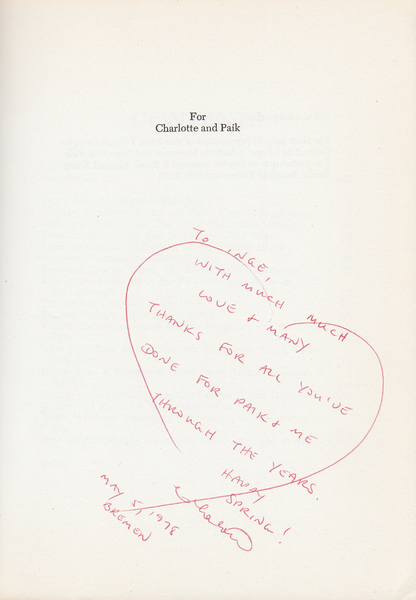 For
Charlotte and Paik
TO INGE,
WITH MUCH MUCH
LOVE & MANY
THANKS FOR ALL YOU'VE
DONE FOR PAIK & ME
THROUGH THE YEARS.
HAPPY
SPRING!
MAY 5, 1978
BREMEN